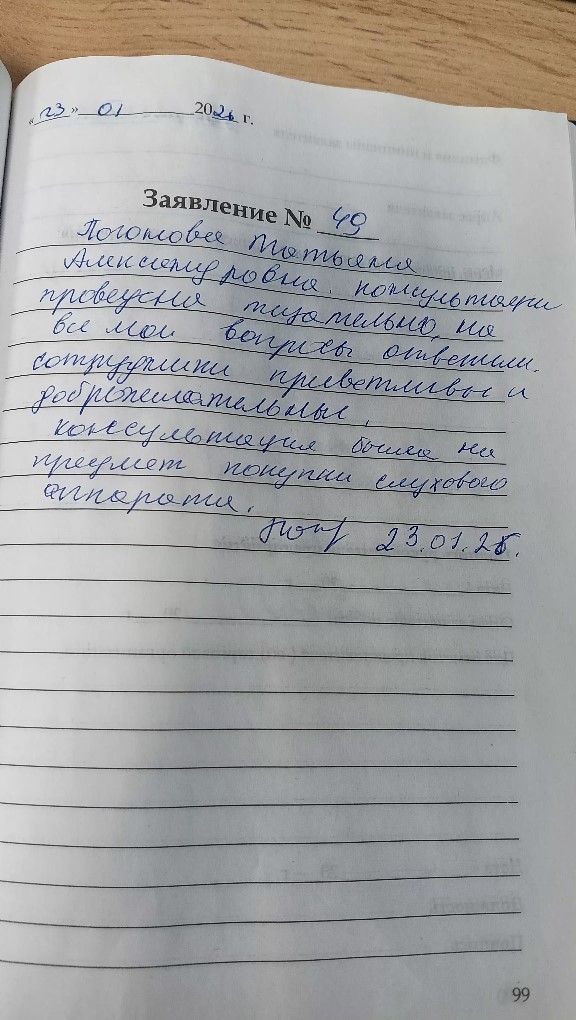 «23» 01 2026 г.
Заявление № 49
Татьяна
Александровна. консультация
проведена тщательно, на
все мои вопросы ответили.
сотрудники приветливы и
доброжелательны.
консультация была на
предмет покупки слухового
аппарата.
23.01.26.
99